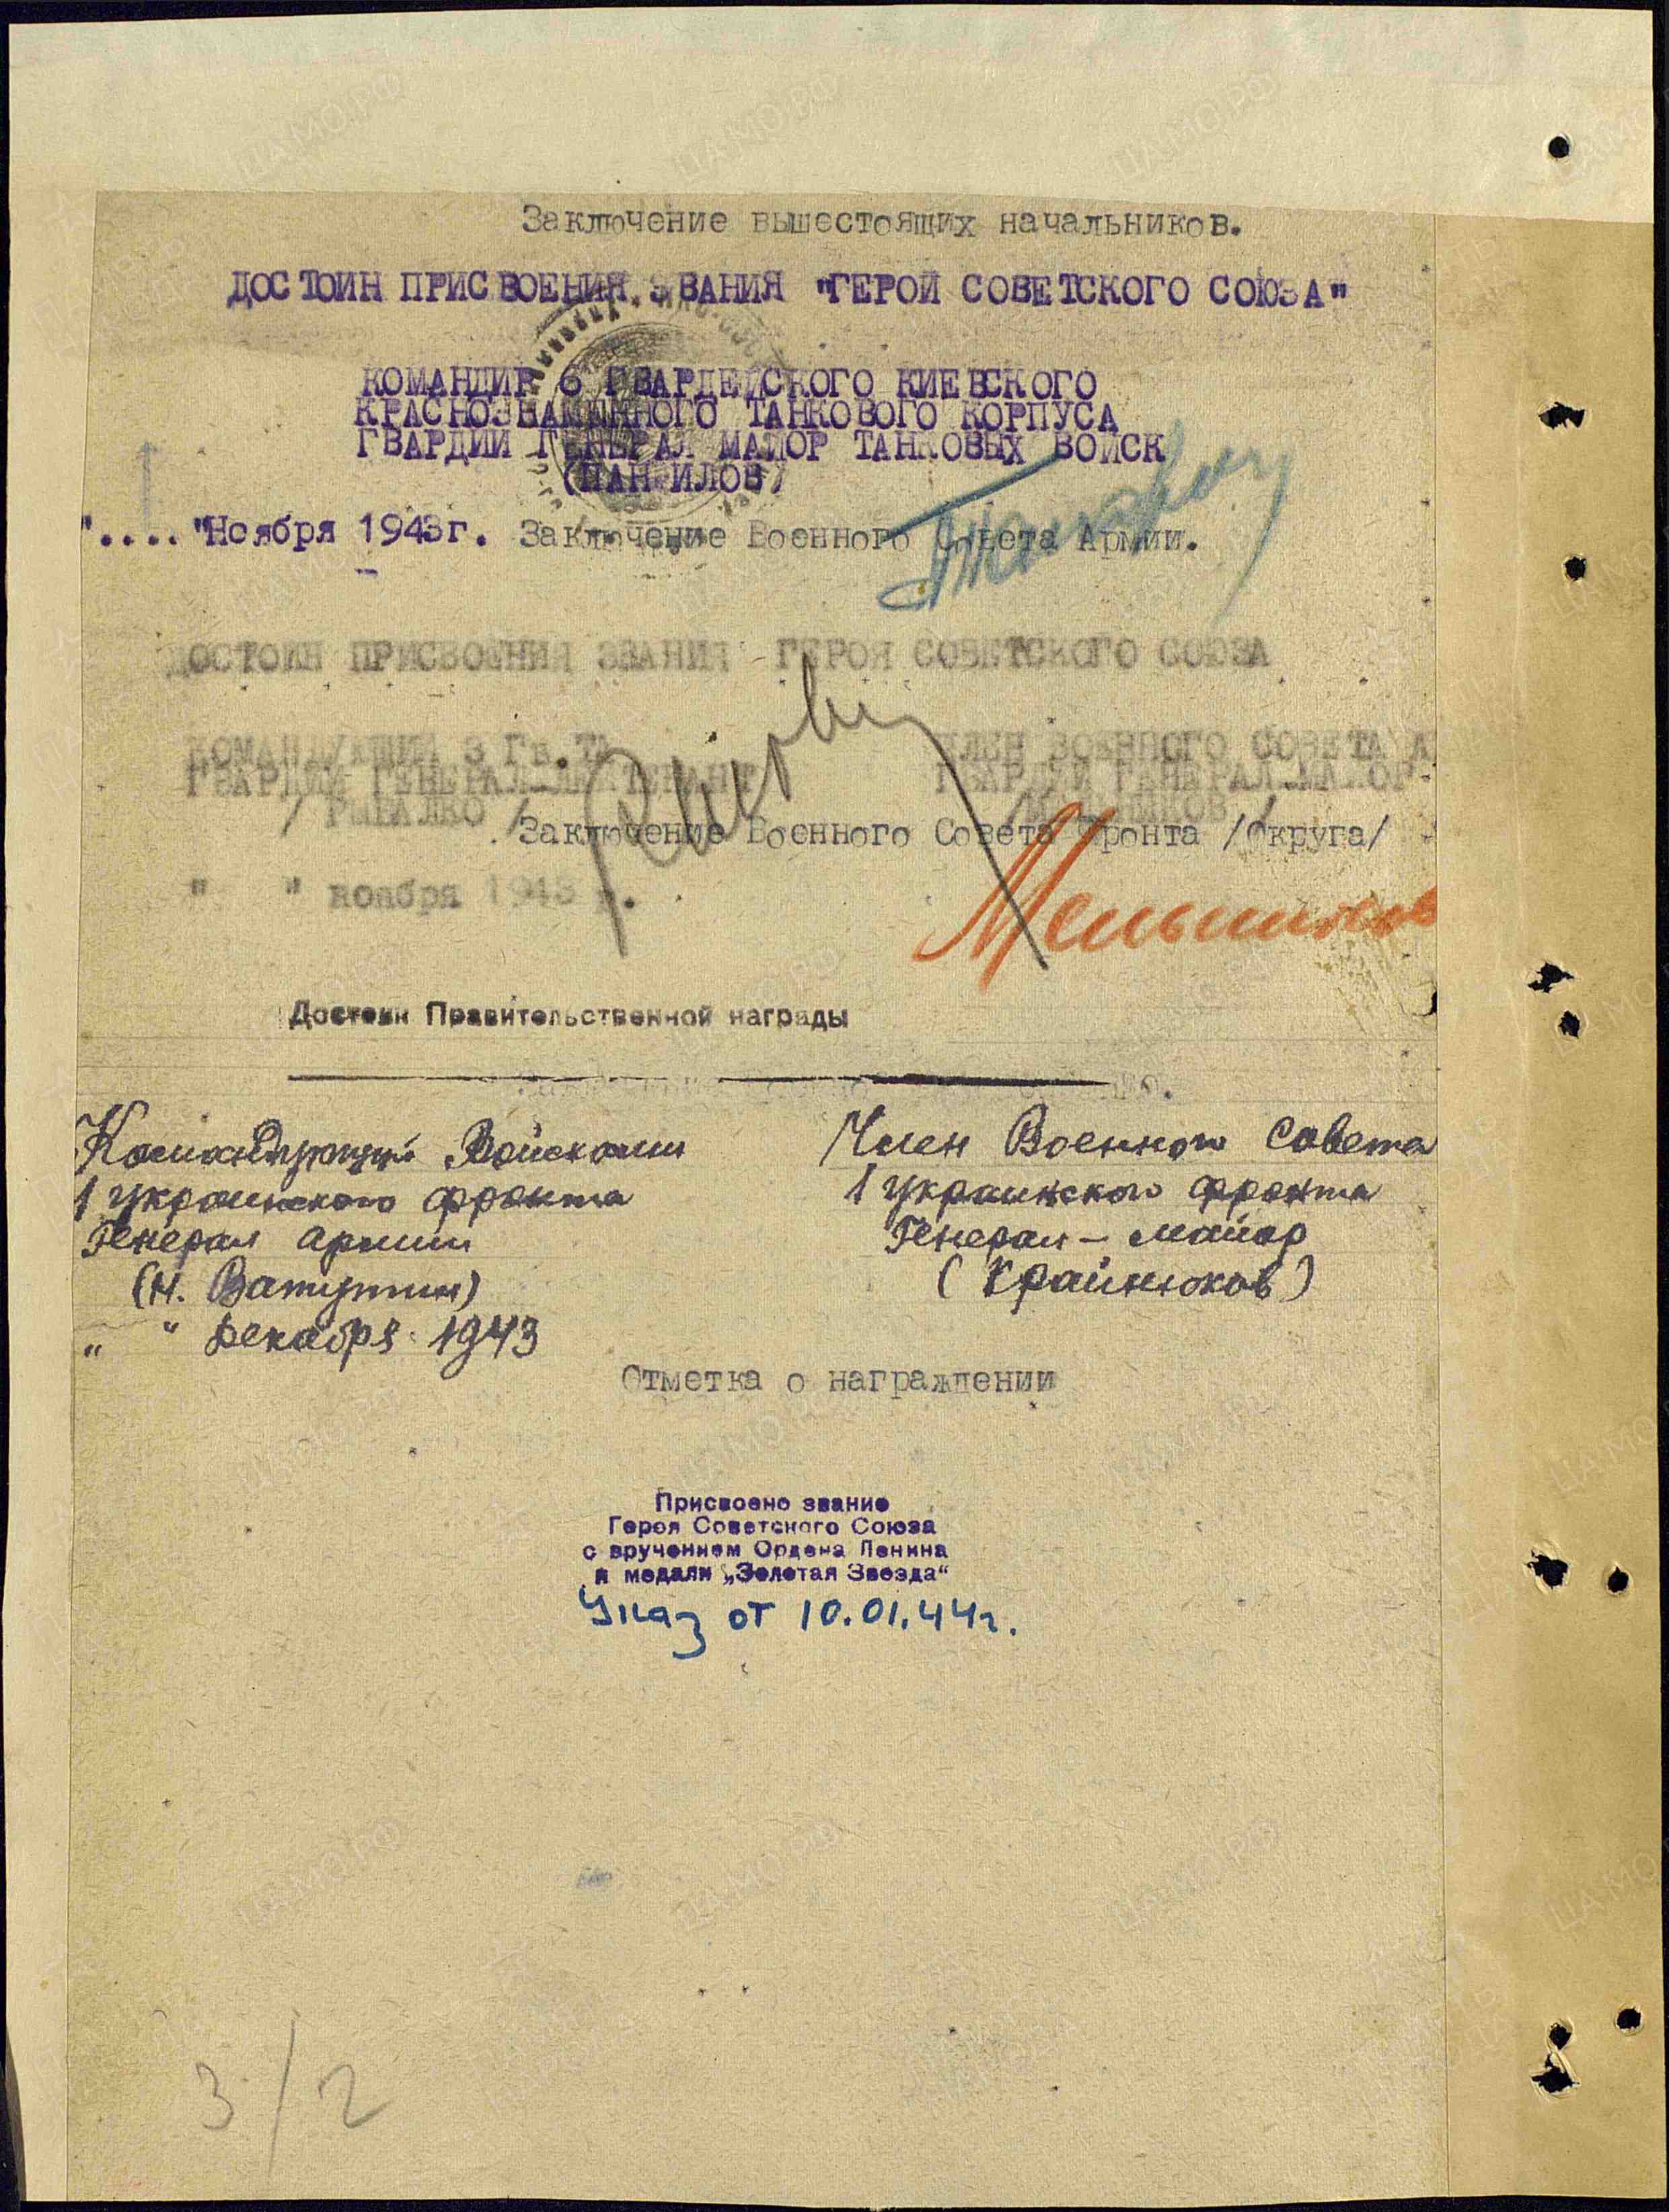 Заключение вышестоящих начальников.
ДОСТОИН ПРИСВОЕНИЯ ЗВАНИЯ "ГЕРОЙ СОВЕТСКОГО СОЮЗА"
КОМАНДИР 6 ГВАРДЕЙСКОГО КИЕВСКОГО
КРАСНОЗНАМЕННОГО ТАНКОВОГО КОРПУСА
ГВАРДИИ ГЕНЕРАЛ МАЙОР ТАНКОВЫХ ВОЙСК
(ПАНФИЛОВ)
".... "Ноября 1943г. Заключение Военного Совета Армии.
ДОСТОИН ПРИСВОЕНИЯ ЗВАНИЯ ГЕРОЯ СОВЕТСКОГО СОЮЗА
КОМАНДУЮЩИЙ 3 Гв.ТА ЧЛЕН ВОЕННОГО СОВЕТА А
ГВАРДИИ ГЕНЕРАЛ-ЛЕЙТЕНАНТ ГВАРДИИ ГЕНЕРАЛ-МАЙОР
/ РЫБАЛКО / /МЕЛЬНИКОВ /
Заключение Военного Совета Фронта /Округа/
" " ноября 1943 г.
Мельников
Достоин Правительственной награды
Командующий Войсками Член Военного Совета
1 Украинского фронта 1 Украинского фронта
Генерал Армии Генерал-майор
(Н. Ватутин) (Крайнюков)
" " Декабря 1943
Отметка о награждении
Присвоено звание
Героя Советского Союза
с вручением Ордена Ленина
и медали „Золотая Звезда“
Указ от 10.01.44г.
3/2